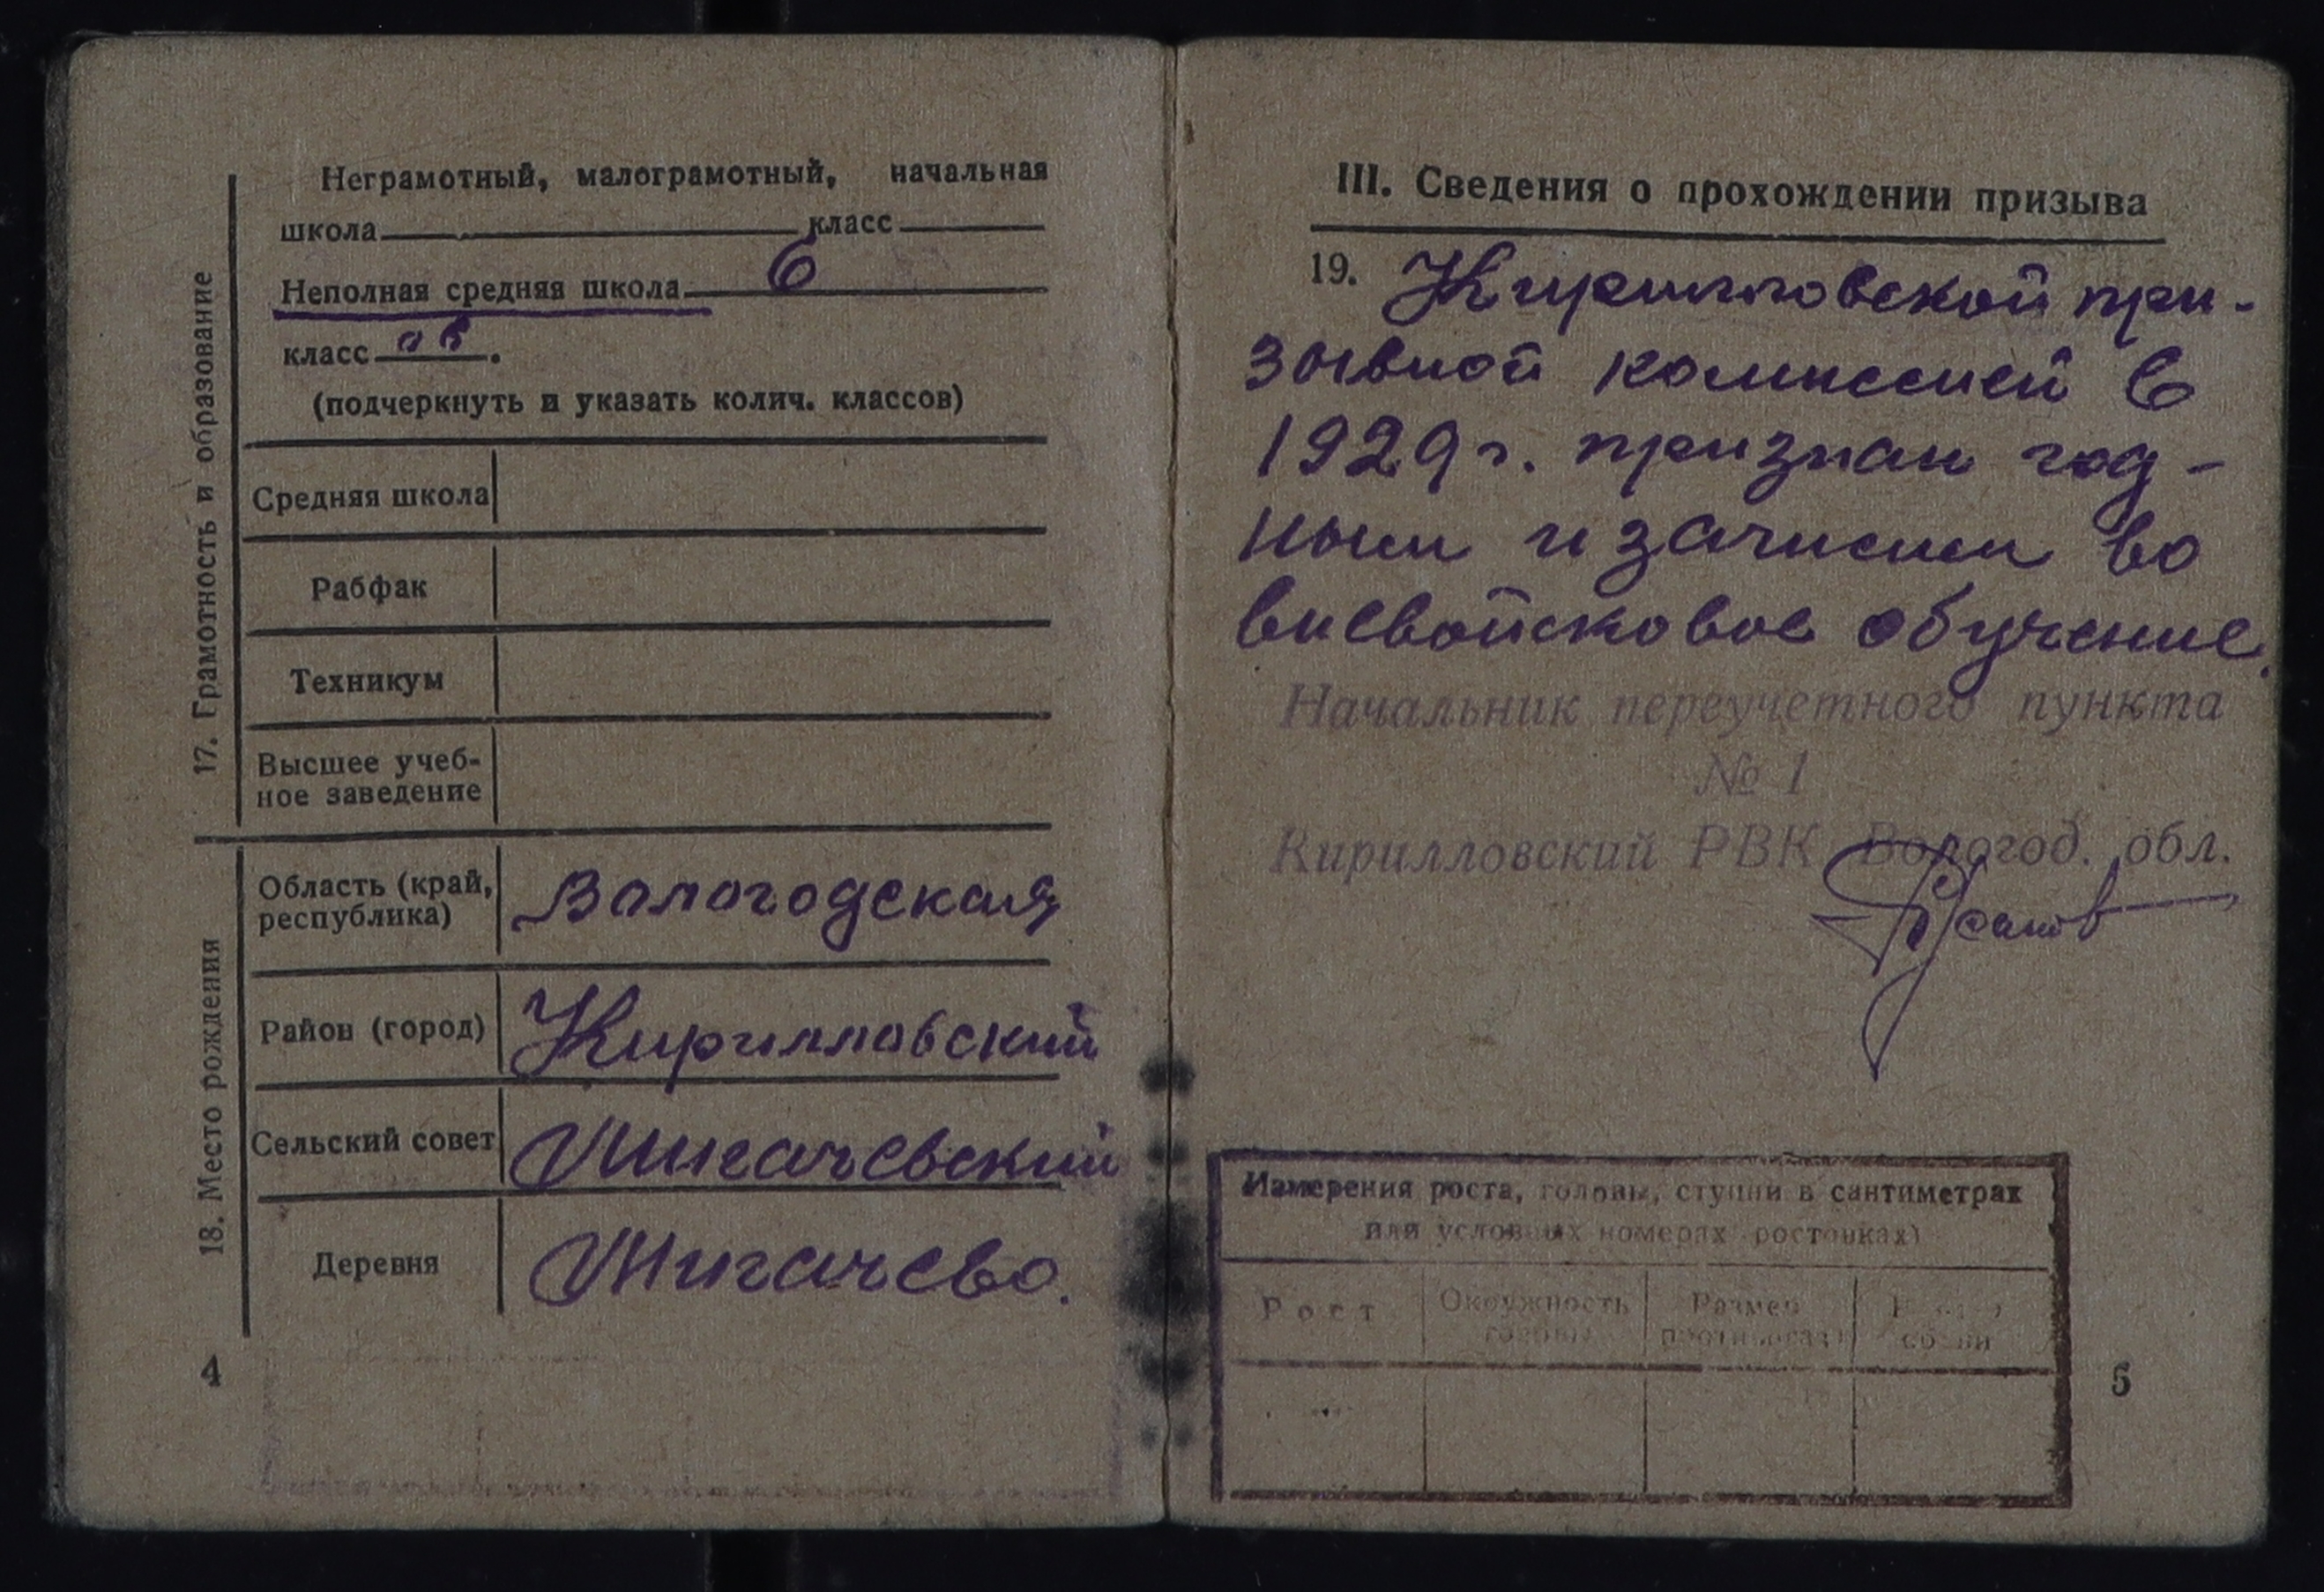 17. Грамотность и образование
Неграмотный, малограмотный, начальная
школа класс
Неполная средняя школа 6
класс ов.
(подчеркнуть и указать колич. классов)
Средняя школа
Рабфак
Техникум
Высшее учеб-
ное заведение
18. Место рождения
Область (край,
республика)
Вологодская
Район (город) Кирилловский
Сельский совет Шигачевский
Деревня Шигачево.
4
III. Сведения о прохождении призыва
19. Кирилловской при-
зывной комиссией в
1929 г. признан год-
ным и зачислен во
вневойсковое обучение.
Начальник переучетного пункта
№ 1
Кирилловский РВК Вологод. обл.
Измерения роста, головы, ступни в сантиметрах
или условных номерах ростовках)
Рост Окружность Размер
головы противогаза обуви
5